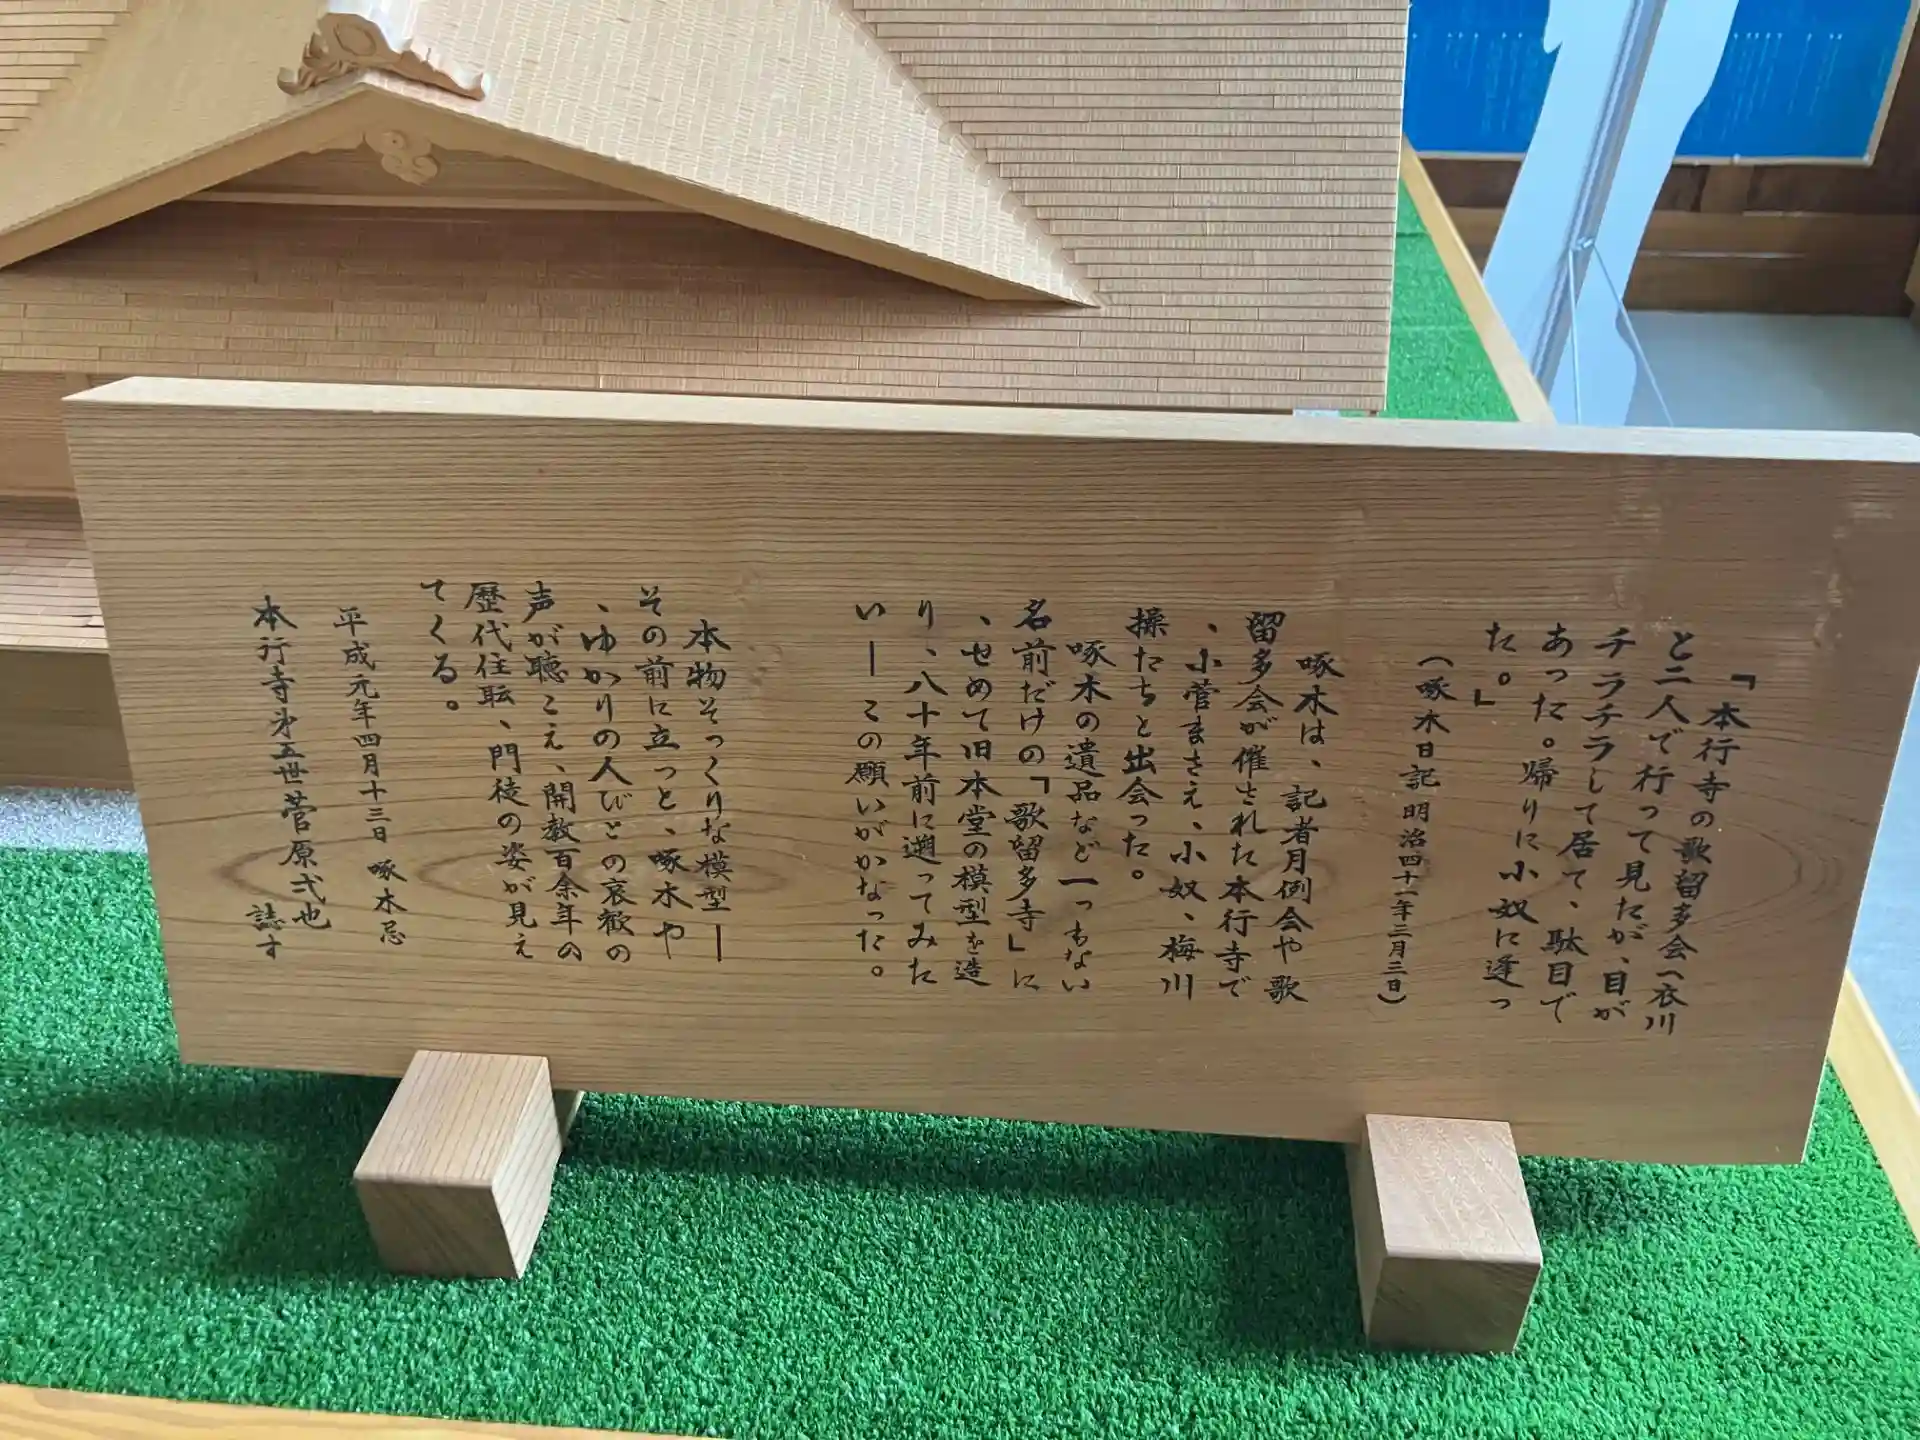 「本行寺の歌留多会へ衣川
と二人で行って見たが、目が
チラチラして居て、駄目で
あった。帰りに小奴に逢っ
た。」
（啄木日記 明治四十一年三月三日）
啄木は、記者月例会や歌
留多会が催された本行寺で
、小菅まさえ、小奴、梅川
操たちと出会った。
啄木の遺品など一つもない
名前だけの「歌留多寺」に
、せめて旧本堂の模型を造
り、八十年前に遡ってみた
い―この願いがかなった。
本物そっくりな模型―
その前に立つと、啄木や
、ゆかりの人びとの哀歓の
声が聴こえ、開教百余年の
歴代住職、門徒の姿が見え
てくる。
平成元年四月十三日 啄木忌
本行寺第五世菅原弌也
誌す